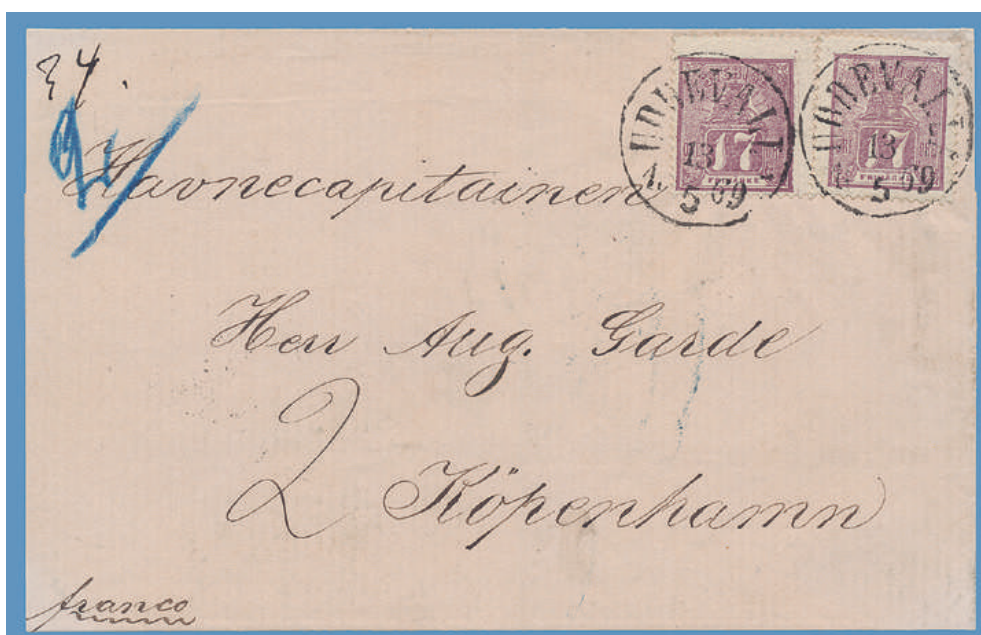 34.
UDDEVALLA
13
5 69
17
FRIMÄRKE
UDDEVALLA
13
5 69
17
FRIMÄRKE
Havnecapitainen
Herr Aug. Garde
2
Köpenhamn
franco